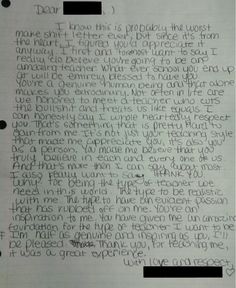 Dear
I know this is probably the worst
make shift letter ever, but since it's from
the heart, I figured you'd appreciate it
anyway. First and foremost want to say I
really do believe you're going to be an
amazing teacher. What ever school you end up
at will be entirely blessed to have you.
You're a genuine human being and that alone
makes you extraordinary. Not often in life are
we honored to meet a teacher who cuts
the bullshit and treats us like equals. I
can honestly say I whole heartedly respect
you. That's something that is pretty hard to
earn from me. It's not just your teaching style
that made me appreciate you, it's also you
as a person. You made me believe that you
truly believe in each and every one of us
And that's more than I can say about most
I also really want to say THANK YOU
Why? For being the type of teacher we
need in this world. The type to be realistic
with me. The type to have an evident passion
that has rubbed off on me. You're an
inspiration to me. You have given me an amazing
foundation for the type of teacher I want to be
If I'm half as genuine and inspiring as you, I'll
be pleased. Thank you, for teaching me,
it was a great experience.
With love and respect,